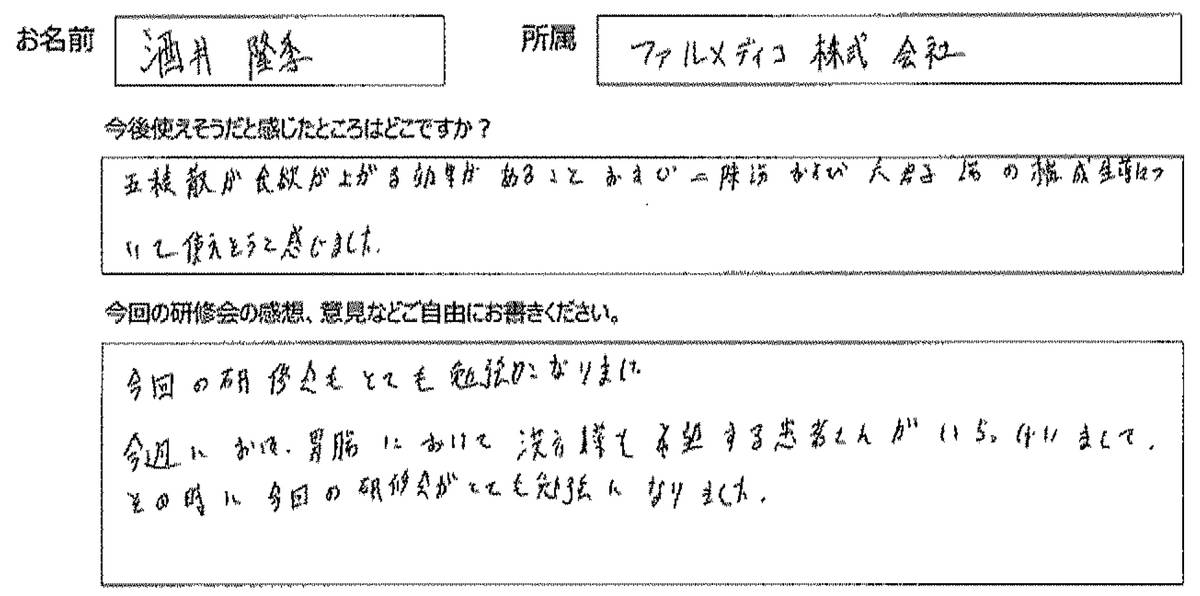 お名前 酒井 隆季 所属 ファルメディコ 株式 会社
今後使えそうだと感じたところはどこですか？
五積散が食欲が上がる効果があること および 二陳湯 および 六君子湯の構成生薬につ
いて使えそうと感じました。
今回の研修会の感想、意見などご自由にお書きください。
今回の研修会もとても勉強になりました
今週に 胃腸 において 漢方 を 希望する患者さんが いらっしゃいまして、
その時に今回の研修会がとても勉強になりました。